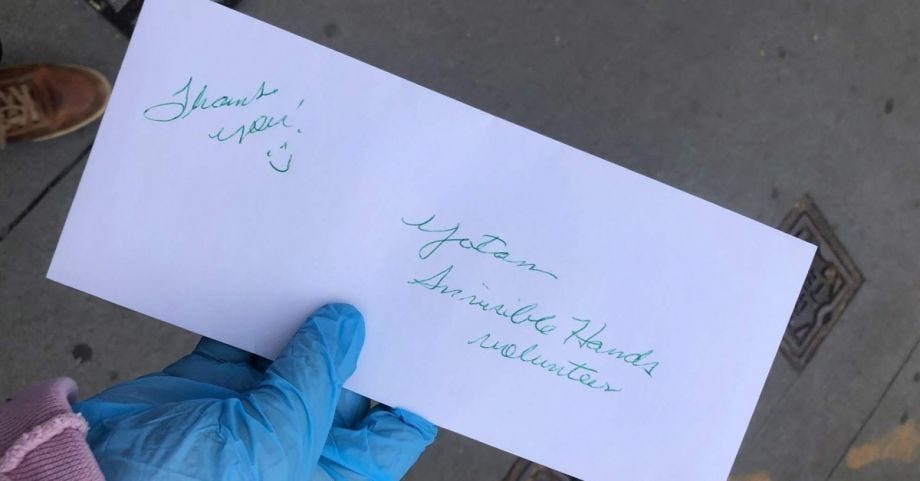 Thank
you!
:)
Yotam
Invisible Hands
volunteer